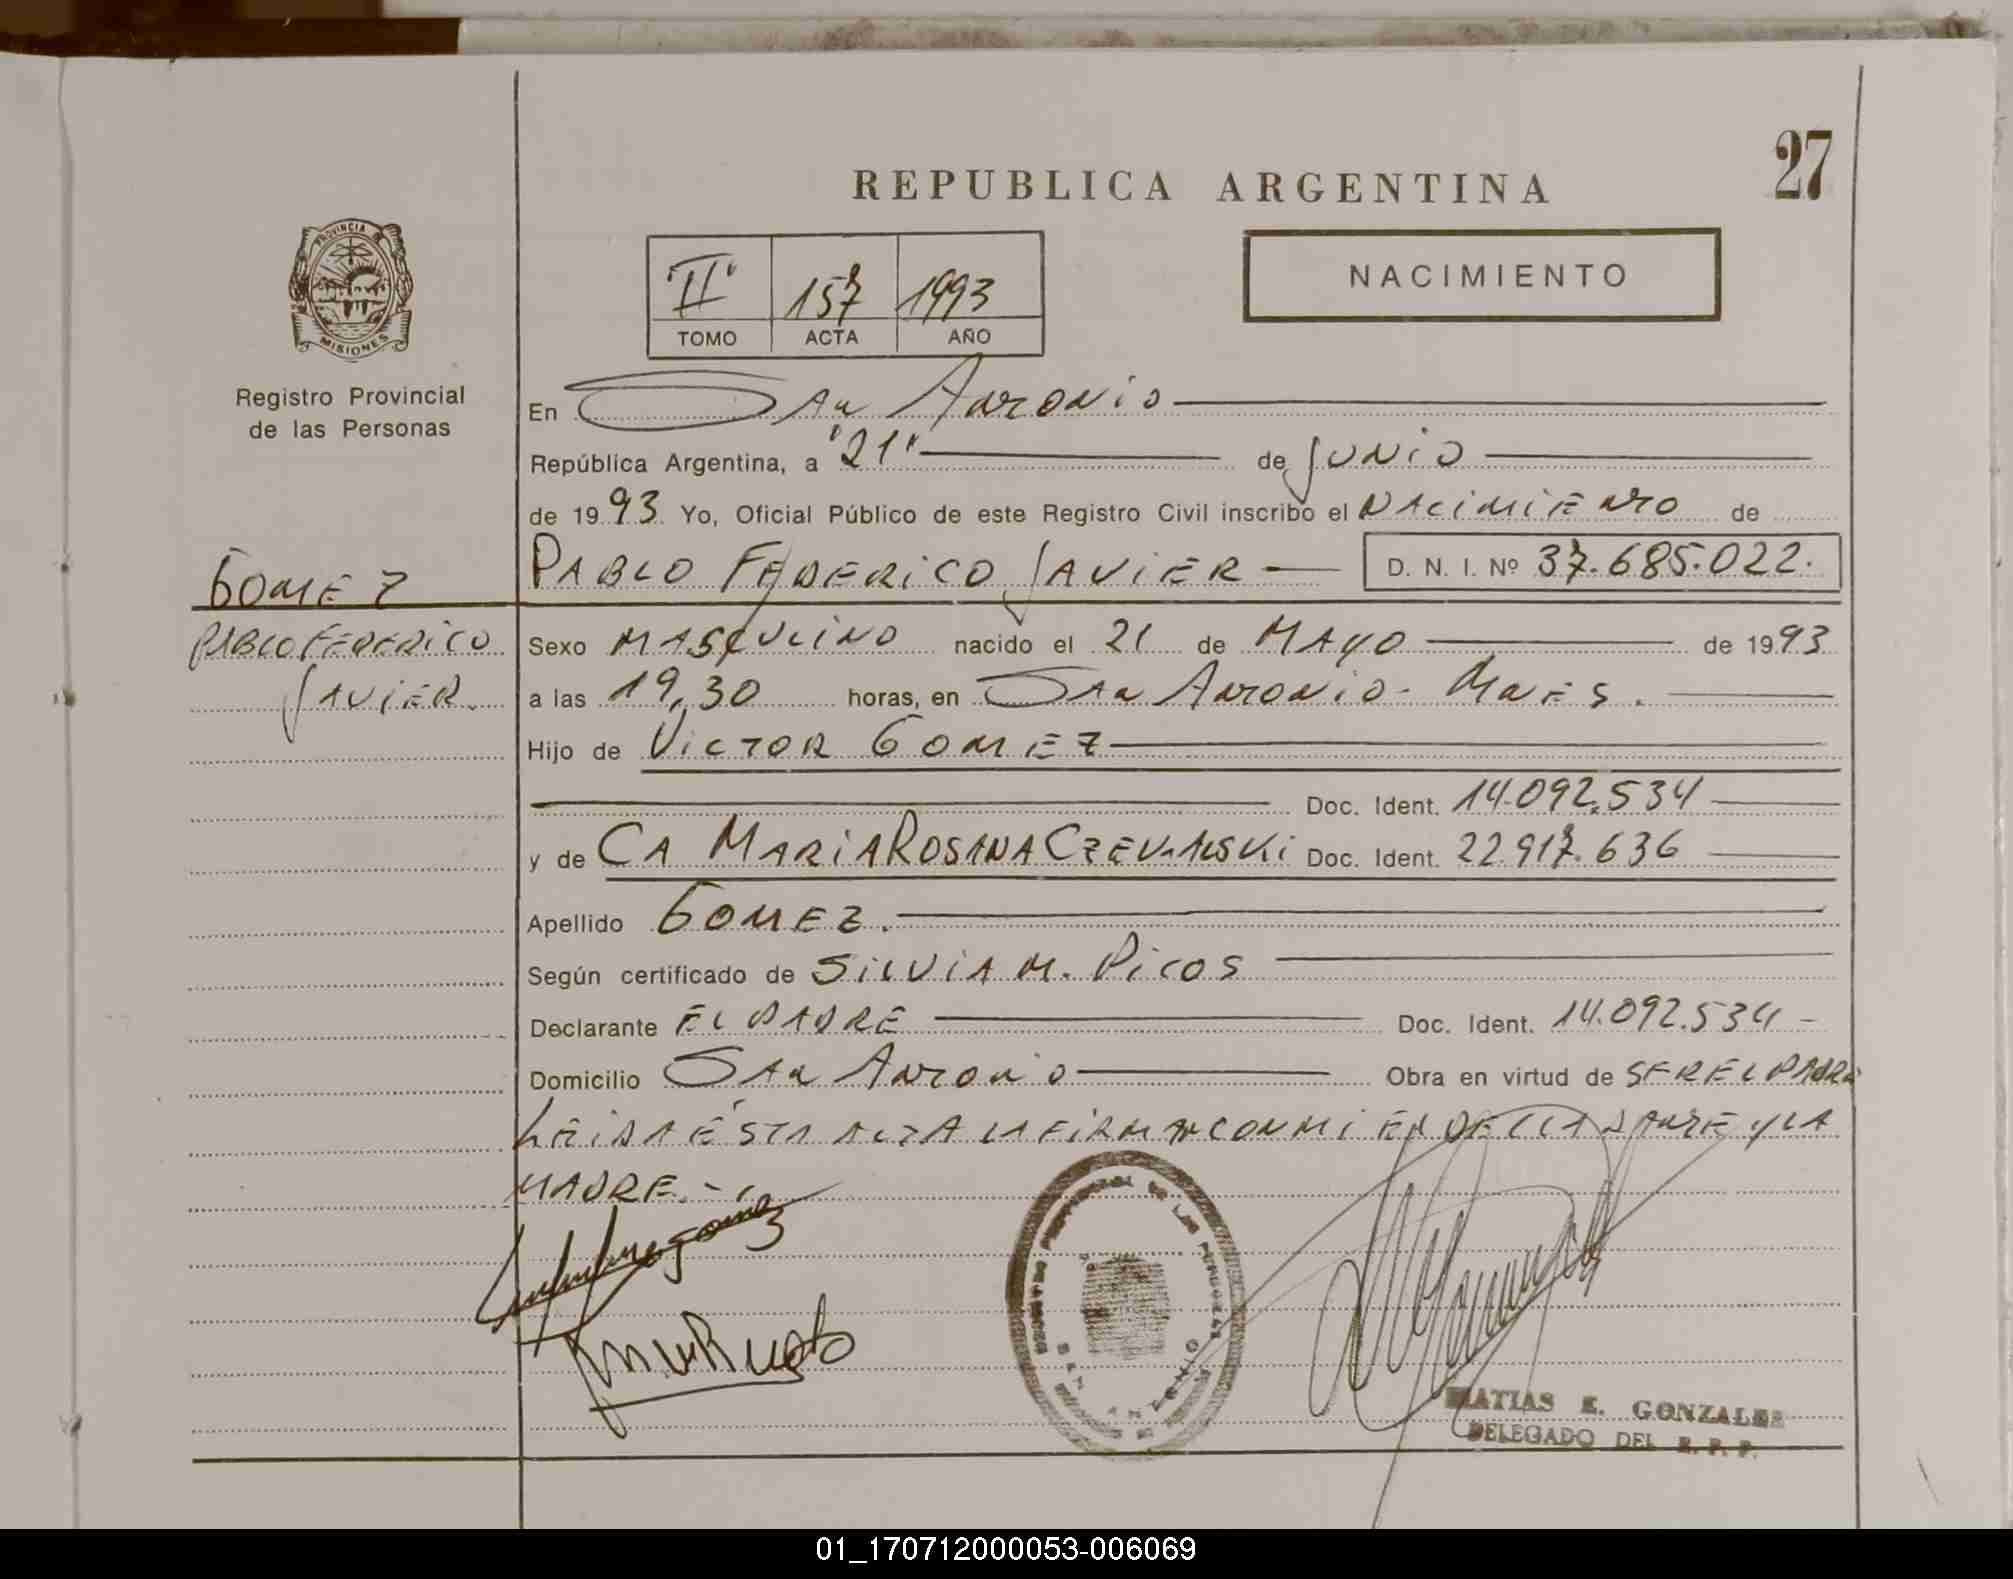 27
REPUBLICA ARGENTINA
PROVINCIA DE
MISIONES
Registro Provincial
de las Personas
"II" 157 1993
TOMO ACTA AÑO
NACIMIENTO
En San Antonio
República Argentina, a "21" de Junio
de 1993 Yo, Oficial Público de este Registro Civil inscribo el NACIMIENTO de
GOMEZ
PABLO FEDERICO JAVIER D. N. I. Nº 37.685.022.
PABLO FEDERICO
JAVIER.
Sexo MASCULINO nacido el 21 de MAYO de 1993
a las 19,30 horas, en San Antonio - Mnes.
Hijo de VICTOR GOMEZ
Doc. Ident. 14.092.534
y de CA MARIA ROSANA Doc. Ident. 22.917.636
Apellido GOMEZ.
Según certificado de SILVIA M. PICOS
Declarante EL PADRE Doc. Ident. 14.092.534 -
Domicilio San Antonio Obra en virtud de SER EL PADRE
LEIDA ÉSTA ACTA LA FIRMAN CONMI EL PADRE Y LA
MADRE.-
REGISTRO PROVINCIAL DE LAS PERSONAS
SAN ANTONIO
MISIONES
MATIAS E. GONZALEZ
DELEGADO DEL R. P. P.
01_170712000053-006069